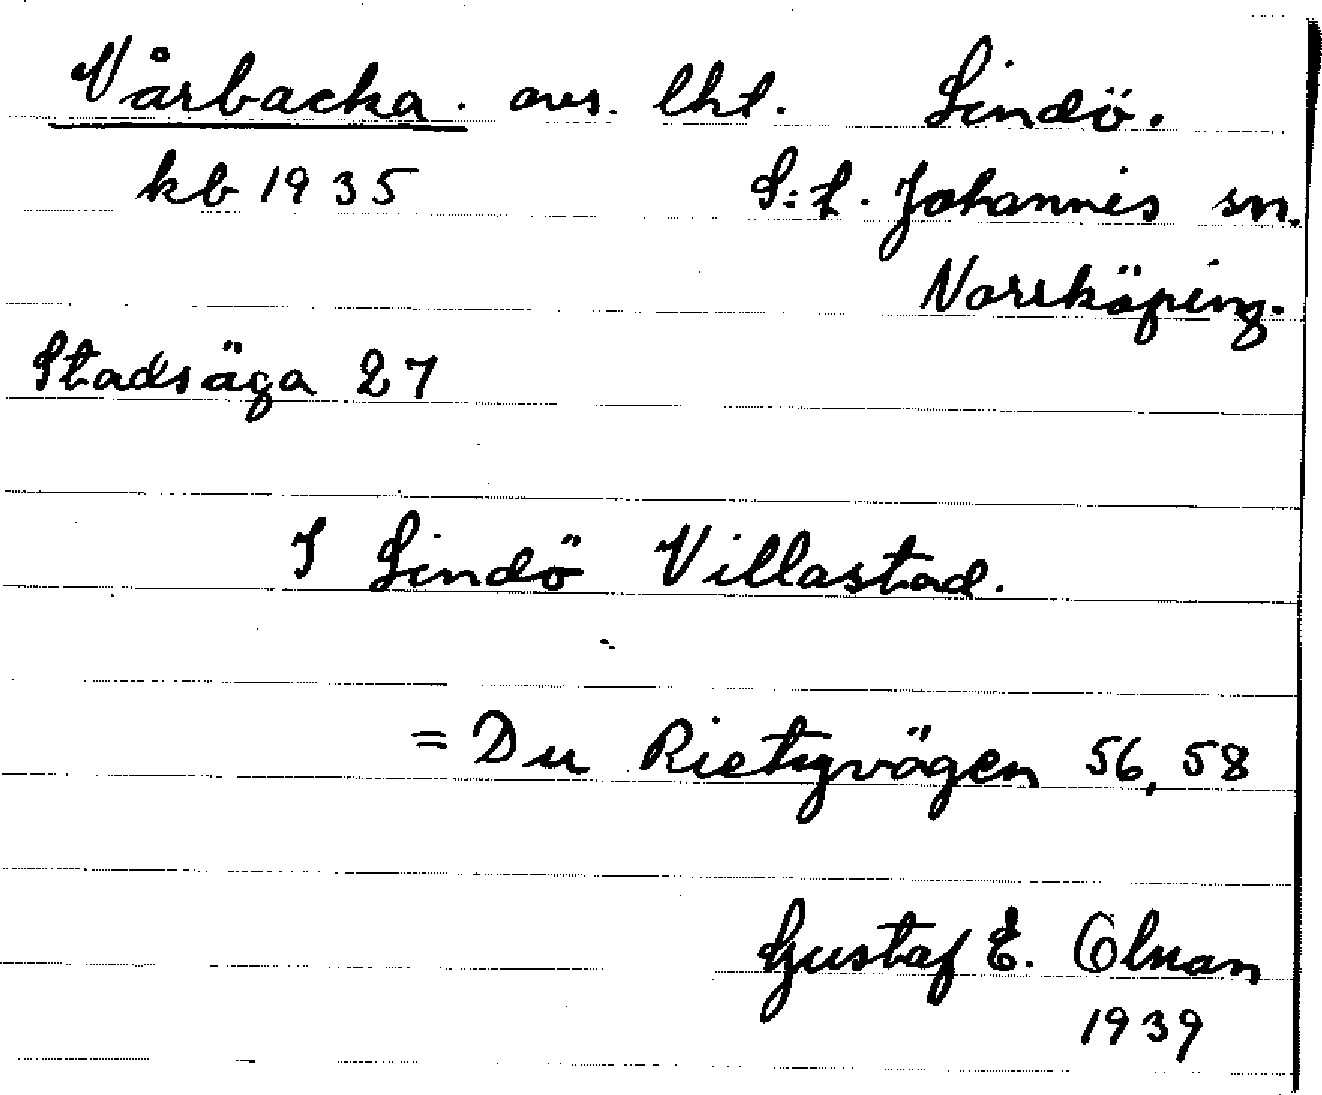 Vårbacka. avs. lht. Lindö.
kb 1935 S:t. Johannis sn.
Norrköping.
Stadsäga 27
I Lindö Villastad.
= Du Rietzvägen 56, 58
Gustaf E. Olnan
1939